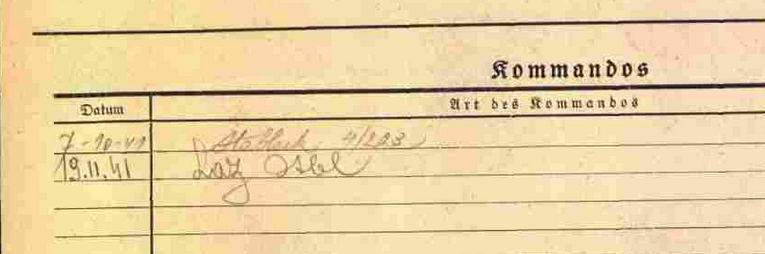 Kommandos
Datum Art des Kommandos
7-10-41 4/223
19.11.41 Laz